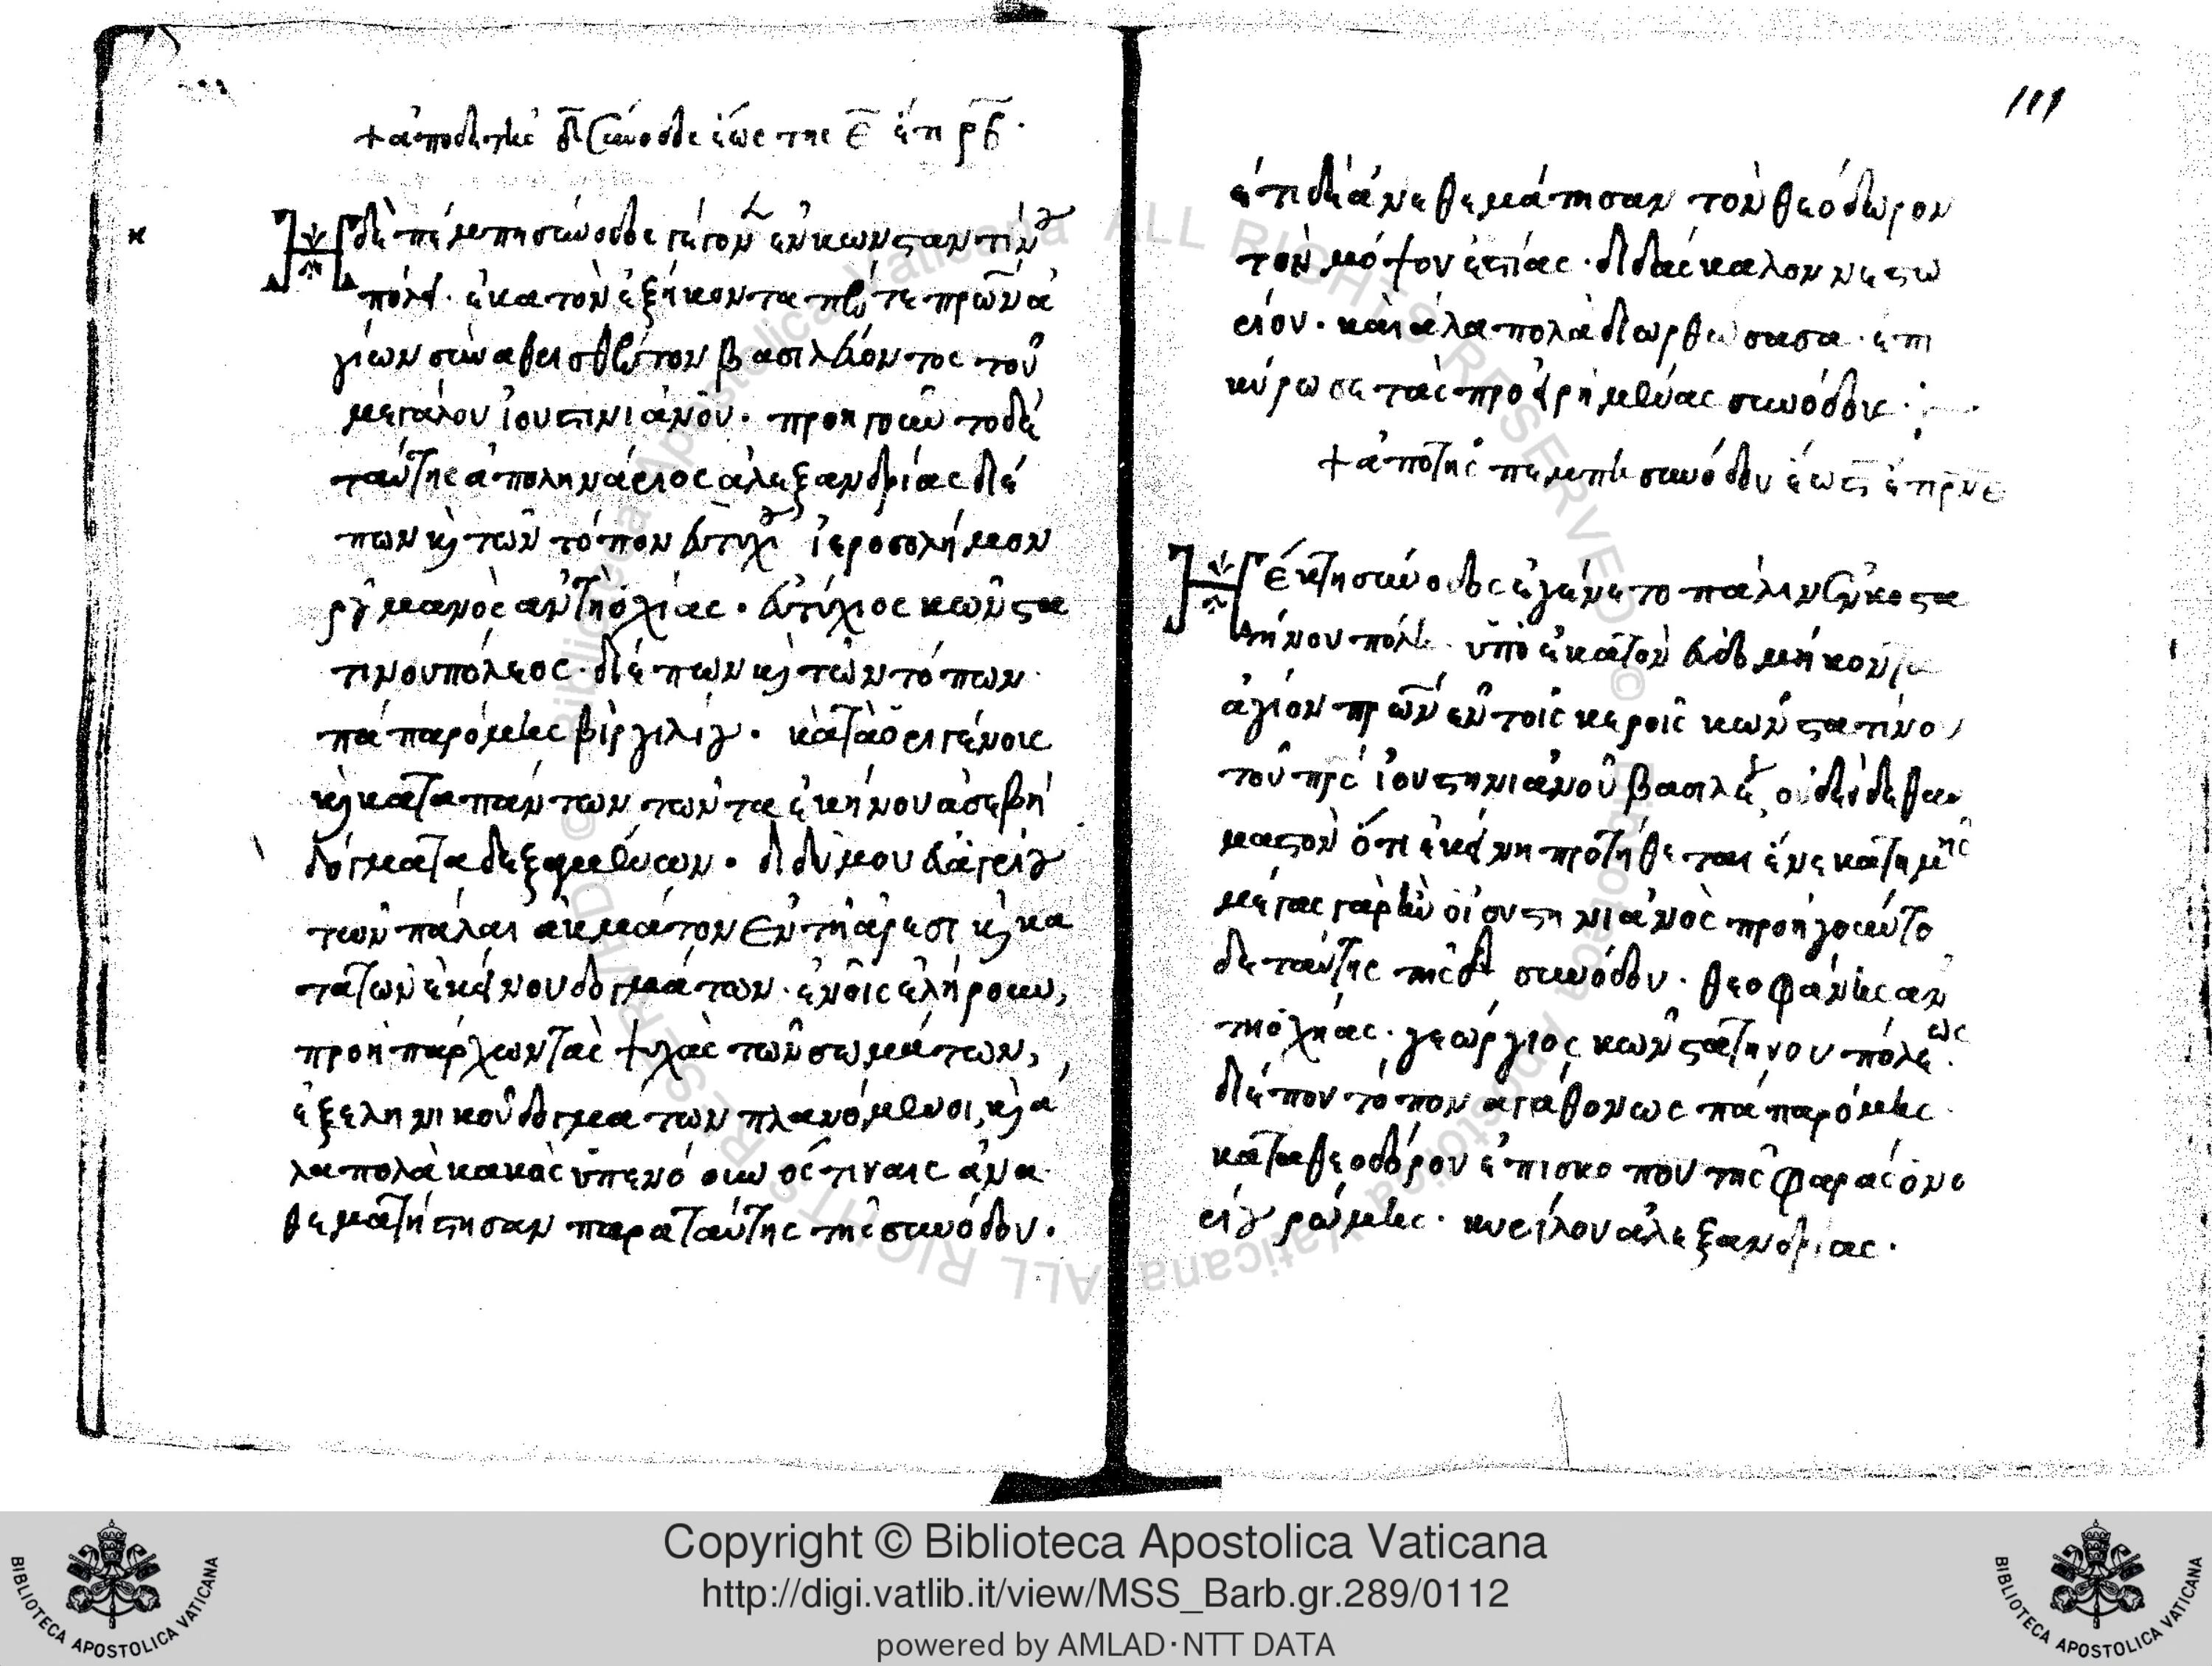 + ἀπο δὲ τῆς δ̅ συνόδου ἕως της ε̅ ἔτη ρ̅β̅·
Ἡ δὲ πέμπτη σύνοδος γέγον ἐν κωνσταντίν
πόλη· ἑκατὸν ἑξήκοντα πέντε πρῶν ἁ
γίων συναθρισθέντον βασιλεύοντος τοῦ
μεγάλου ϊουστινιάνοῦ· προηγοῦντο δὲ
ταύτης ἀπολημνάριος ἀλεξανδρίας διέ
πων κ̀ τῶν τόπον εὐτυχί ἱεροσολήμον
ρῦμανὸς ἀντὴοχίας· εὐτύχιος κωνστα
τινουπόλεος· διέπων κ̀ τῶν τόπων
πάπα ρόμης βιργιλίου· κὰτὰ ὀριγένους
κ̀ κατα πάντων τῶν τα ἐκήνου ἀσεβῆ
δόγματα δεξαμένων· διδύμου εὐαγρίου
των πάλαι ἀκμάτον ἐν τῆ ἀρεσι κ̀ κα
τα των ἐκείνου δογμάτων· ἐν οἷς ἐλήρουν,
προὴπάρχωντας ψχὰς τῶν σωμάτων,
ἐξ εληνικοῦ δογμάτων πλανόμενοι, κ̀ ἀ
λα πολὰ κακὰς ὑπενόουν οἵτιναις ἀνα
θεματήστησαν παρα ταύτης τῆς συνόδου.
111
ἔτι δὲ ἀνεθεμάτησαν τὸν θεόδωρον
τὸν μόψουεστίας· διδάσκαλον νεστω
ρίον· κὰι ἄλα πολὰ διωρθώσασα· ἐπι
κύρωσε τὰς προειρημένας συνόδους·
+ ἀπο τῆς πέμπτης συνόδου ἕως ϛ̅ ἔτη ρ̅ν̅ε̅
Ἡ ἕκτη σύνοδος ἐγένετο πάλιν ἐν κοστα
τήνουπόλη· ὑπὸ ἑκατὸν εὐδομήκοντα
ἁγίον πρῶν ἐν τοῖς κεροῖς κωνστατίνο
τοῦ πρς ϊουστηνιάνοῦ βασιλέ οὐδεὶ δε θαυ
μαστὸν ὅτι ἐκείνη προτήθεται ἕνεκα τημῆς
μέγας γὰρ ἦν ὁ ϊουστηνιάνος προήγουντο
δε ταύτης της συνόδου· θεοφάνης ἀν
τηόχήας· γεώργιος κωνστατηνουπόλεως·
διέπον τόπον ἀγάθονως πάπα ρόμης
κάτα θεοδόρου ἐπισκοπου τῆς φαρας ὀνο
ρίου ρώμης· κυρίλου ἀλεξανδρίας·
Copyright © Biblioteca Apostolica Vaticana
http://digi.vatlib.it/view/MSS_Barb.gr.289/0112
powered by AMLAD·NTT DATA
BIBLIOTECA APOSTOLICA VATICANA
BIBLIOTECA APOSTOLICA VATICANA